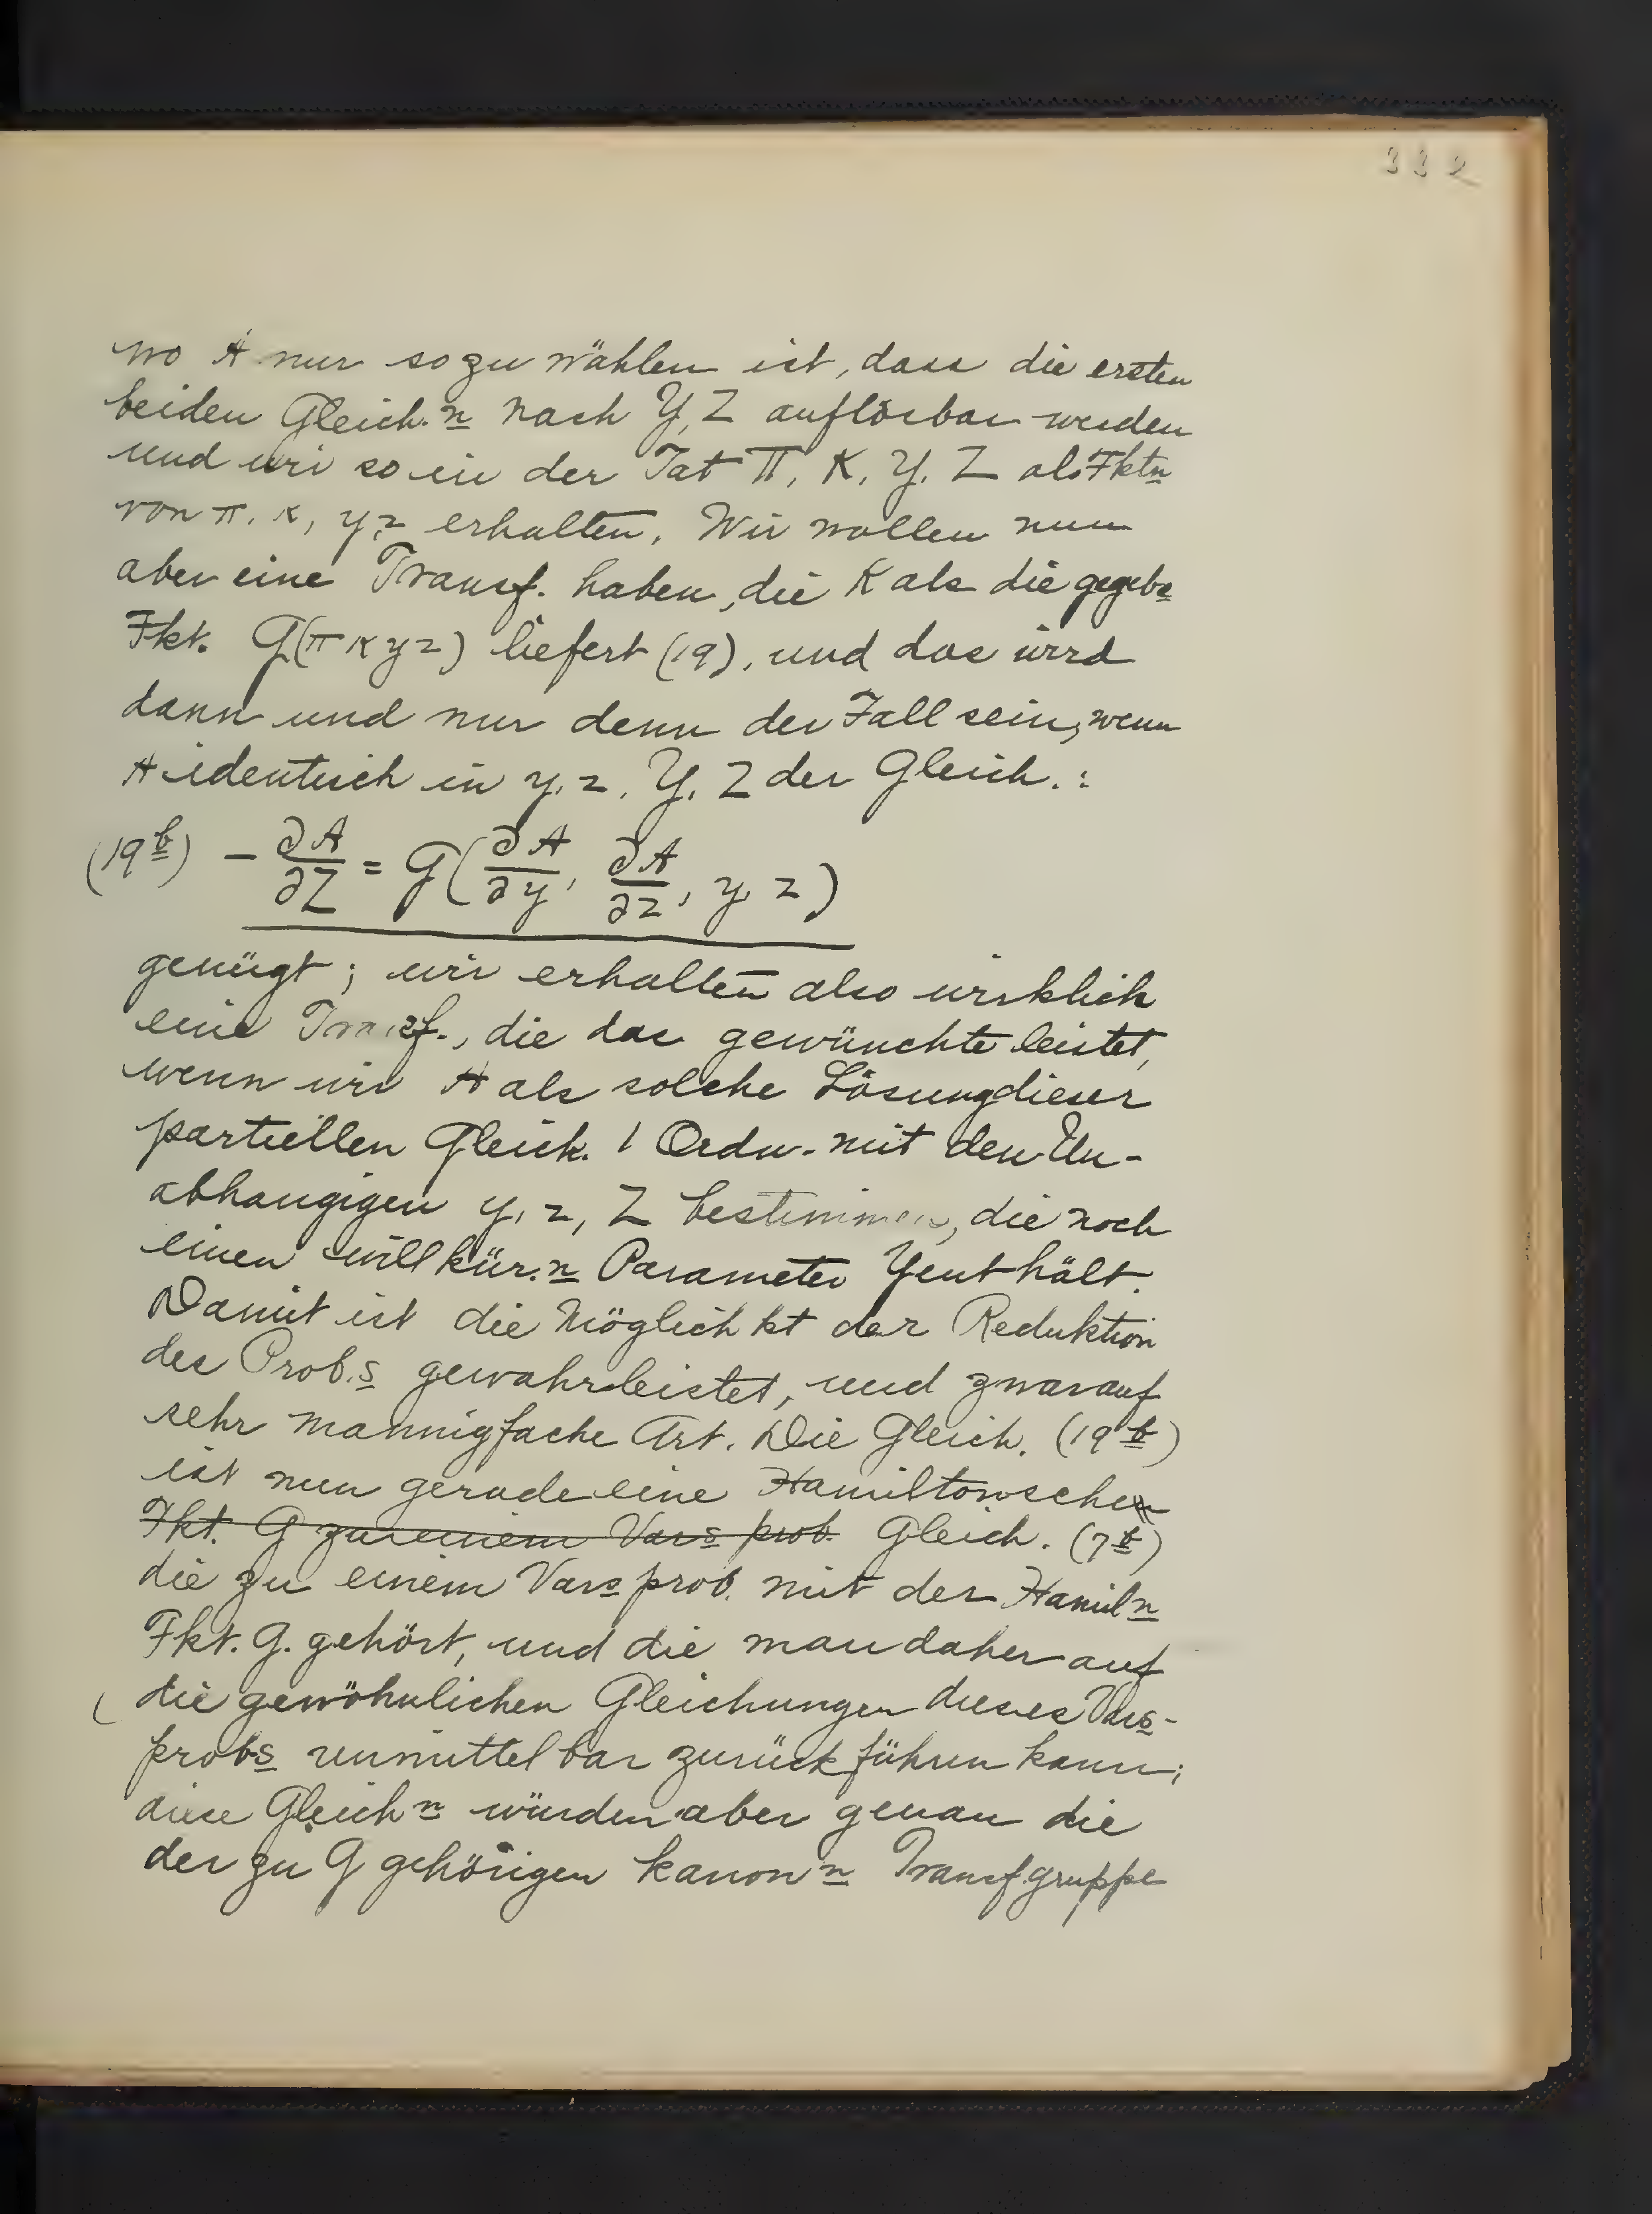 332
wo A nur so zu wählen ist, dass die ersten
beiden Gleich.n nach Y, Z auflösbar werden
und wir so in der Tat Π, K, Y, Z als Fktn
von π, κ, y, z erhalten. Wir wollen nun
aber eine Transf. haben, die K als die gegebe
Fkt. G(π κ y z) liefert (19), und das wird
dann und nur denn der Fall sein, wenn
A identisch in y, z, Y, Z der Gleich.:
(19b) − ∂A/∂Z = G(∂A/∂y, ∂A/∂z, y, z)
genügt; wir erhalten also wirklich
eine Transf., die das gewünchte leistet,
wenn wir A als solche Lösung dieser
partiellen Gleich. 1 Ordn. mit den Un-
abhangigen y, z, Z bestimmen, die noch
einen willkür.n Parameter Y enthält.
Damit ist die Möglichkt der Reduktion
des Prob.s gewahrleistet, und zwar auf
sehr mannigfache Art. Die Gleich. (19b)
ist nun gerade eine Hamiltonsche
Fkt. G zu einem Vars prob. Gleich. (7b)
die zu einem Varsprob. mit der Hamiln
Fkt. G. gehört, und die man daher auf
die gewöhnlichen Gleichungen dieses Vars-
probs unmittelbar zurückführen kann;
diese Gleichn würden aber genau die
der zu G gehörigen kanonn Transfgruppe